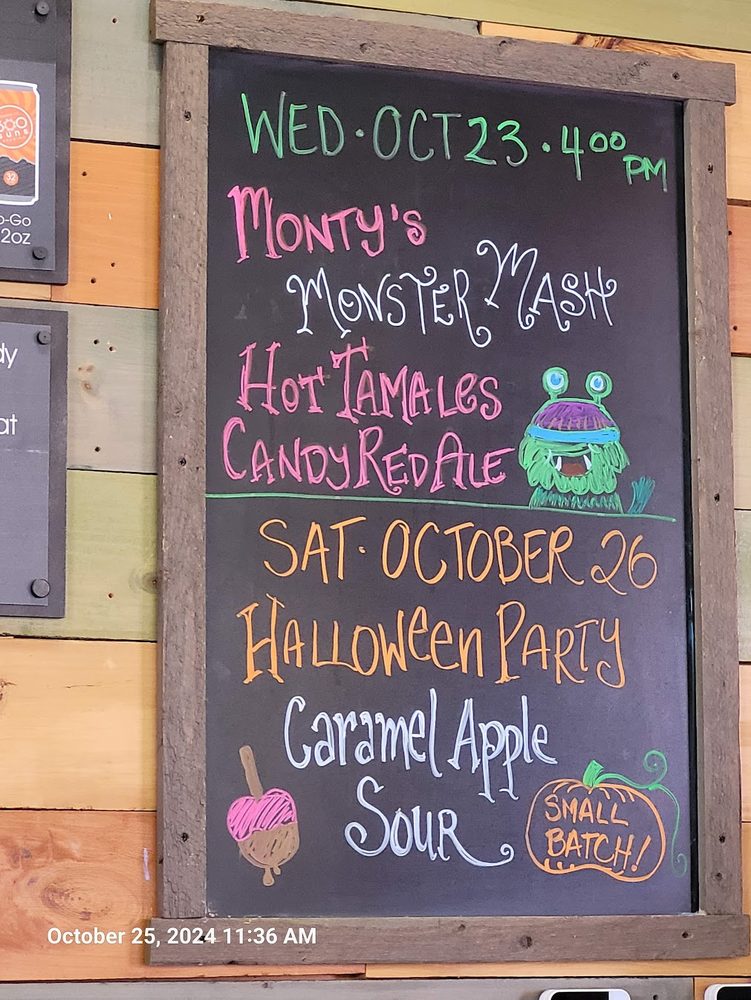 WED · OCT 23 · 4 00 PM
MONTY'S
MONSTER MASH
HOT TAMALES
CANDY RED ALE
SAT · OCTOBER 26
HALLOWEEN PARTY
Caramel Apple
SOUR
SMALL
BATCH!
32
o-Go
2oz
dy
at
October 25, 2024 11:36 AM